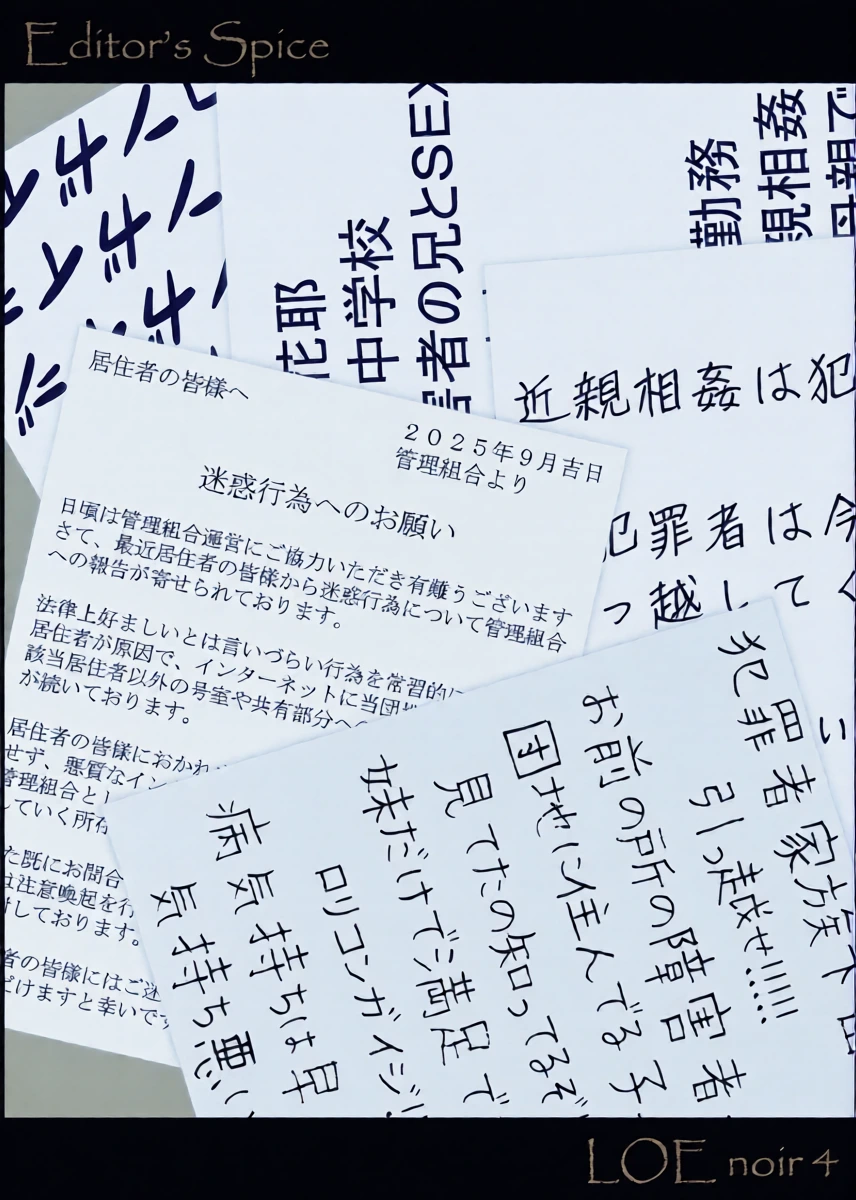 Editor's Spice
花耶
中学校
害者の兄とSEX
勤務
親相姦
母親で
近親相姦は犯
犯罪者は今
っ越してく
居住者の皆様へ
2025年9月吉日
管理組合より
迷惑行為へのお願い
日頃は管理組合運営にご協力いただき有難うございます
さて、最近居住者の皆様から迷惑行為について管理組合
への報告が寄せられております。
法律上好ましいとは言いづらい行為を常習的に
居住者が原因で、インターネットに当団地
該当居住者以外の号室や共有部分へ
が続いております。
居住者の皆様におかれ
せず、悪質なイン
管理組合とし
していく所存
た既にお問合
は注意喚起を行
討しております。
者の皆様にはご迷
だけますと幸いです
犯罪者家族
引っ越せ!!!!!
お前の所の障害者
団地に住んでる子
見てたの知ってるぞ
妹だけで満足で
ロリコンガイジ!
病気持ちは早
気持ち悪い
LOE noir 4